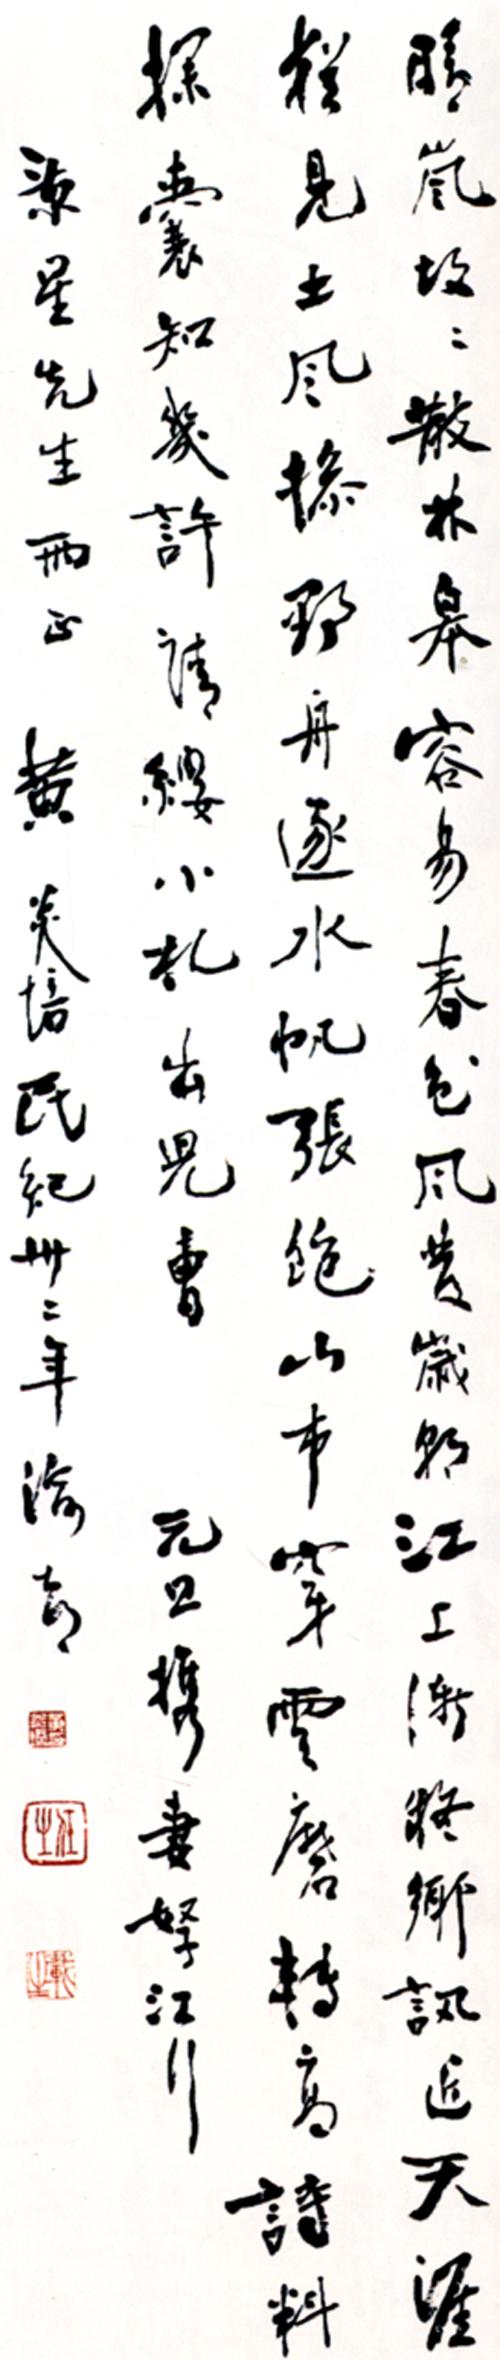 晴嵐故〻散林皋容易春色風發歲朝江上漸將鄉訊近天涯
見土風操野舟逐水帆張飽山市穿雲磨轉高詩料
探囊知幾許請纓小札出兒曹 元旦携妻孥江行
星先生兩正 黃炎培民紀卅二年渝都